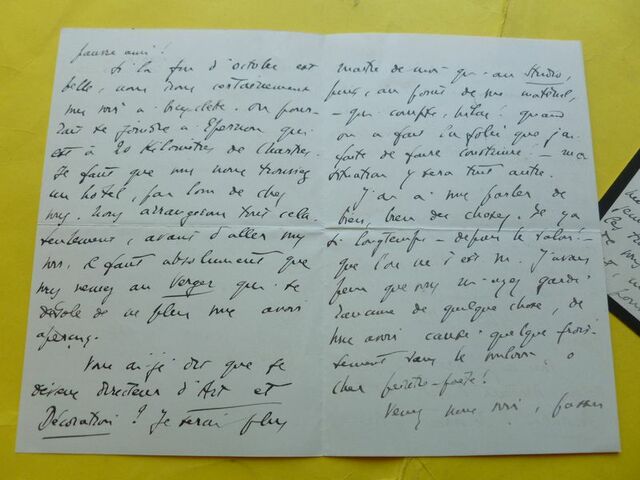 pauvre ami!
Si la fin d'octobre est
belle, nous irons certainement
vous voir à bicyclette. On pour-
rait se joindre à Epernon qui
est à 20 kilomètres de Chartres.
Il faut que vous nous trouviez
un hôtel, pas loin de chez
vous. Nous arrangerons tout cela.
Seulement, avant d'aller vous
voir, il faut absolument que
vous veniez au Verger qui se
désole de ne plus vous avoir
aperçu.
Vous ai-je dit que je
deviens directeur d'Art et
Décoration? Je serai plus
maître de moi qu'au Studio,
puis, au point de vue matériel,
- qui compte, hélas! quand
on a fait la folie que j'ai
faite de faire construire! - ma
situation y sera tout autre.
J'ai à vous parler de
bien, bien des choses. Il y a
si longtemps - depuis le Salon! -
que l'on ne s'est vu. J'avais
peur que vous m'ayez gardé
rancune de quelque chose, de
vous avoir causé quelque frois-
sement sans le vouloir, o
cher peintre-poète!
Venez nous voir,